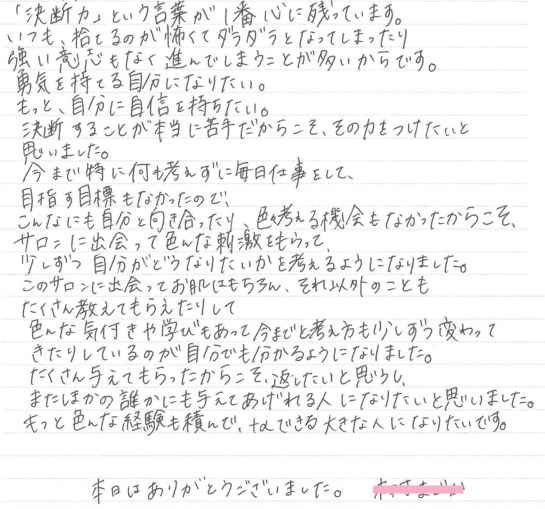 「決断力」という言葉が1番心に残っています。
いつも、捨てるのが怖くてダラダラとなってしまったり
強い意志もなく進んでしまうことが多いからです。
勇気を持てる自分になりたい。
もっと、自分に自信を持ちたい。
決断することが本当に苦手だからこそ、その力をつけたいと
思いました。
今まで特に何も考えずに毎日仕事をして、
目指す目標もなかったので、
こんなにも自分と向き合ったり、色々考える機会もなかったからこそ、
サロンに出会って色んな刺激をもらって、
少しずつ自分がどうなりたいかを考えるようになりました。
このサロンに出会ってお肌はもちろん、それ以外のことも
たくさん教えてもらえたりして
色んな気付きや学びもあって今までと考え方も少しずつ変わって
きたりしているのが自分でも分かるようになりました。
たくさん与えてもらったからこそ、返したいと思うし、
またほかの誰かにも与えてあげれる人になりたいと思いました。
もっと色んな経験も積んで、+αできる大きな人になりたいです。
本日はありがとうございました。